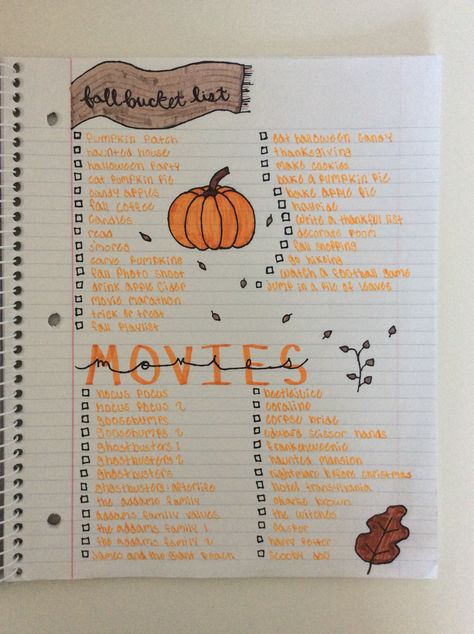 fall bucket list
pumpkin patch
haunted house
halloween party
eat pumpkin pie
candy apples
fall coffee
candles
read
s'mores
carve pumpkins
fall photo shoot
drink apple cider
movie marathon
trick or treat
fall playlist
eat halloween candy
thanksgiving
make cookies
bake a pumpkin pie
bake apple pie
hayride
write a thankful list
decorate room
fall shopping
go hiking
watch a football game
jump in a pile of leaves
MOVIES
movies
hocus pocus
hocus pocus 2
goosebumps
goosebumps 2
ghostbusters 1
ghostbusters 2
ghostbusters
ghostbusters: afterlife
the addams family
addams family values
the addams family 1
the addams family 2
james and the giant peach
beetlejuice
coraline
corpse bride
edward scissor hands
frankenweenie
haunted mansion
nightmare before christmas
hotel transylvania
charlie brown
the witches
casper
harry potter
scooby doo